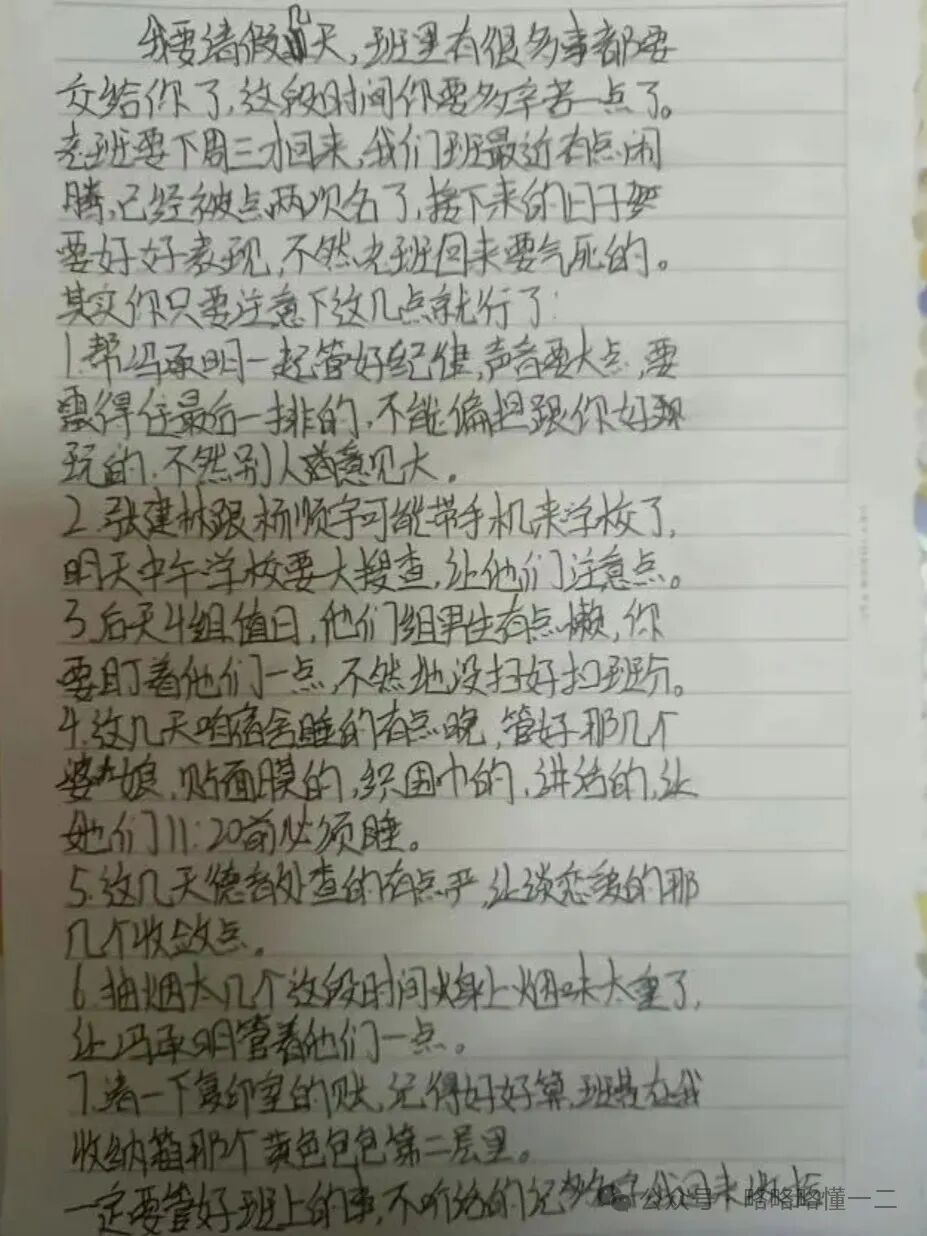 我要请假几天，班里有很多事都要
交给你了，这段时间你要多辛苦一点了。
老班要下周三才回来，我们班最近有点闹
腾，已经被点两次名了，接下来的日子
要好好表现，不然老班回来要气死的。
其实你只要注意下这几点就行了：
1.帮冯承明一起管好纪律，声音要大点，要
震得住最后一排的，不能偏袒跟你好
玩的，不然别人意见大。
2.张建林跟杨顺宇可能带手机来学校了，
明天中午学校要大搜查，让他们注意点。
3.后天4组值日，他们组男生有点懒，你
要盯着他们一点，不然地没扫好扣班分。
4.这几天咱宿舍睡的有点晚，管好那几个
婆娘，贴面膜的，织围巾的，讲话的，让
她们11:20前必须睡。
5.这几天德育处查的有点严，让谈恋爱的那
几个收敛点。
6.抽烟那几个这段时间身上烟味太重了，
让冯承明管着他们一点。
7.清一下复印室的账，记得好好算，班费在我
收纳箱那个黄色包包第二层里。
一定要管好班上的事，不听话的记 我回来收拾
公众号·略略略懂一二